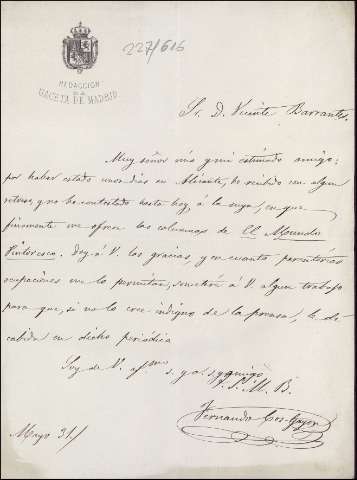 227/616
REDACCION
DE LA
GACETA DE MADRID
Sr. D. Vicente Barrantes
Muy señor mio y mi estimado amigo:
por haber estado unos dias en Alicante, he recibido con algun
retraso y no he contestado hasta hoy á la suya, en que
finamente me ofrece las columnas de El Mundo
Pintoresco. Doy á V. las gracias, y en cuanto perentorias
ocupaciones me lo permitan, remitiré á V. algun trabajo
para que, si no lo cree indigno de la prensa, le dé
cabida en dicho periódico
Soy de V. afmo s. y amigo
Q. S. M. B.
Fernando Cos-Gayon
Mayo 31/